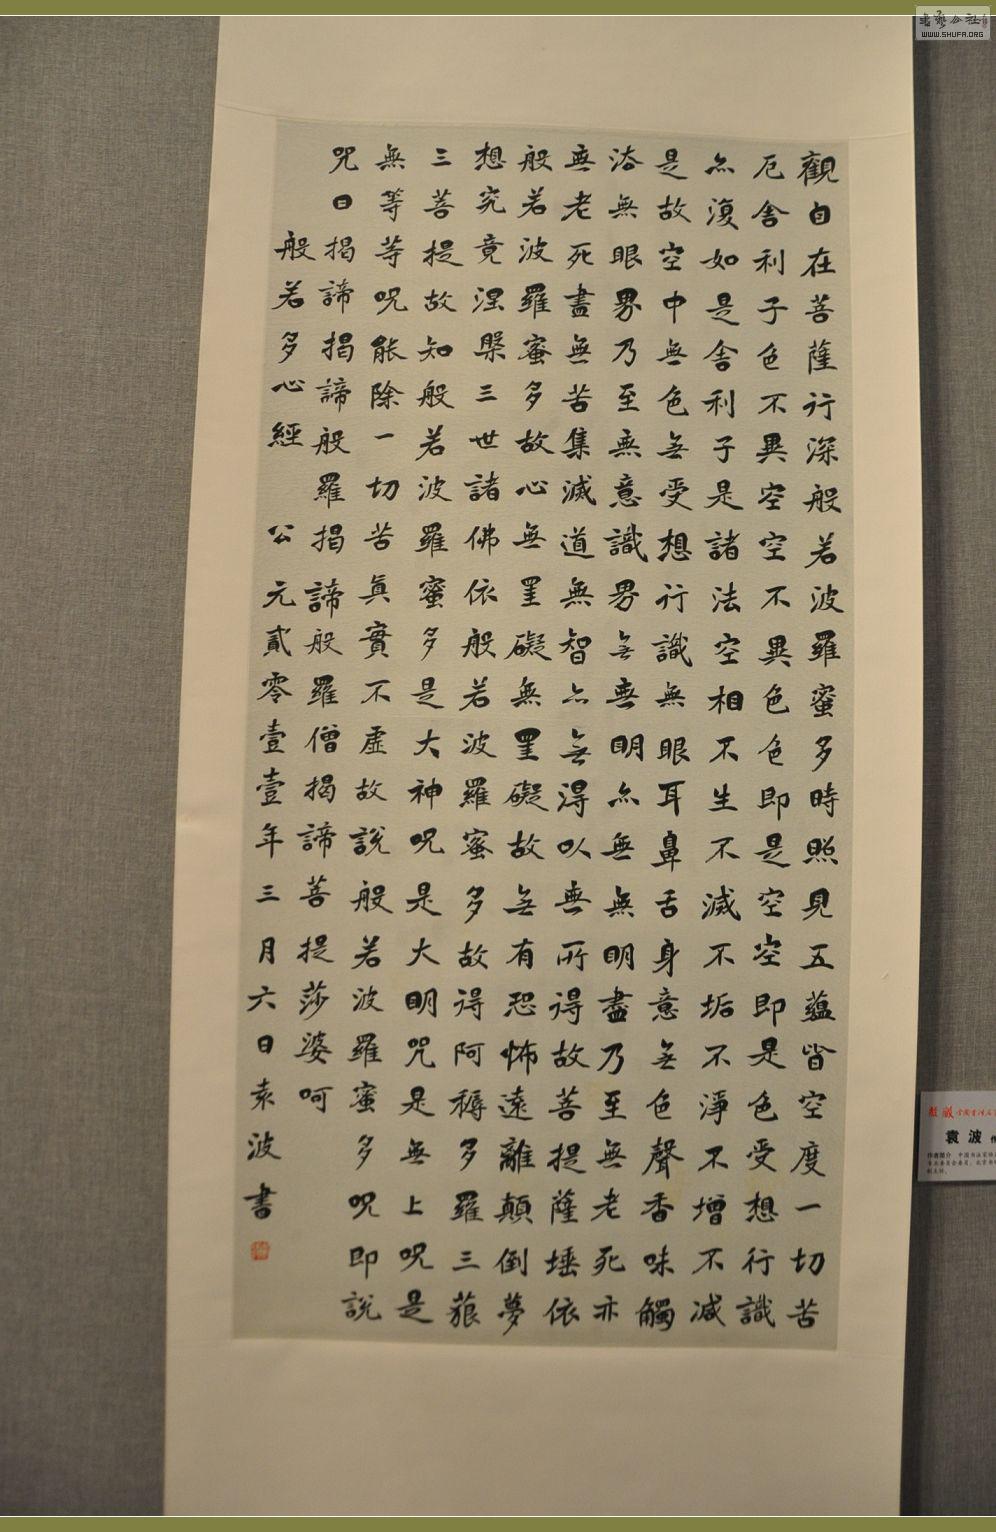 觀自在菩薩行深般若波羅蜜多時照見五蘊皆空度一切苦
厄舍利子色不異空空不異色色即是空空即是色受想行識
亦復如是舍利子是諸法空相不生不滅不垢不淨不增不減
是故空中無色無受想行識無眼耳鼻舌身意無色聲香味觸
法無眼界乃至無意識界無無明亦無無明盡乃至無老死亦
無老死盡無苦集滅道無智亦無得以無所得故菩提薩埵依
般若波羅蜜多故心無罣礙無罣礙故無有恐怖遠離顛倒夢
想究竟涅槃三世諸佛依般若波羅蜜多故得阿耨多羅三藐
三菩提故知般若波羅蜜多是大神呪是大明咒是無上呪是
無等等呪能除一切苦真實不虛故說般若波羅蜜多呪即說
咒曰揭諦揭諦般羅揭諦般羅僧揭諦菩提莎婆呵
般若多心經 公元貳零壹壹年三月六日袁波書
書藝公社
WWW.SHUFA.ORG
袁波
作者简介